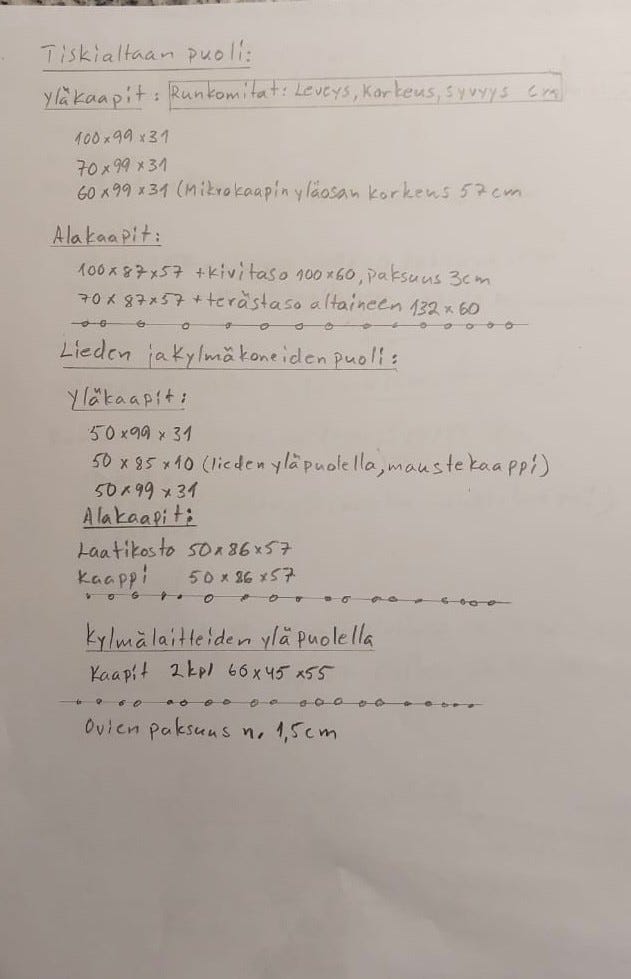 Tiskialtaan puoli:
Yläkaapit: Runkomitat: Leveys, Korkeus, syvyys cm
100x99x31
70x99x31
60x99x31 (Mikrokaapin yläosan korkeus 57cm
Alakaapit:
100x87x57 +kivitaso 100x60, paksuus 3cm
70x87x57 +terästaso altaineen 132x60
Lieden ja kylmäkoneiden puoli:
Yläkaapit:
50x99x31
50x85x10 (lieden yläpuolella, maustekaappi)
50x99x31
Alakaapit:
Laatikosto 50x86x57
Kaappi 50x86x57
Kylmälaitteiden yläpuolella
Kaapit 2kpl 60x45x55
Ovien paksuus n. 1,5cm